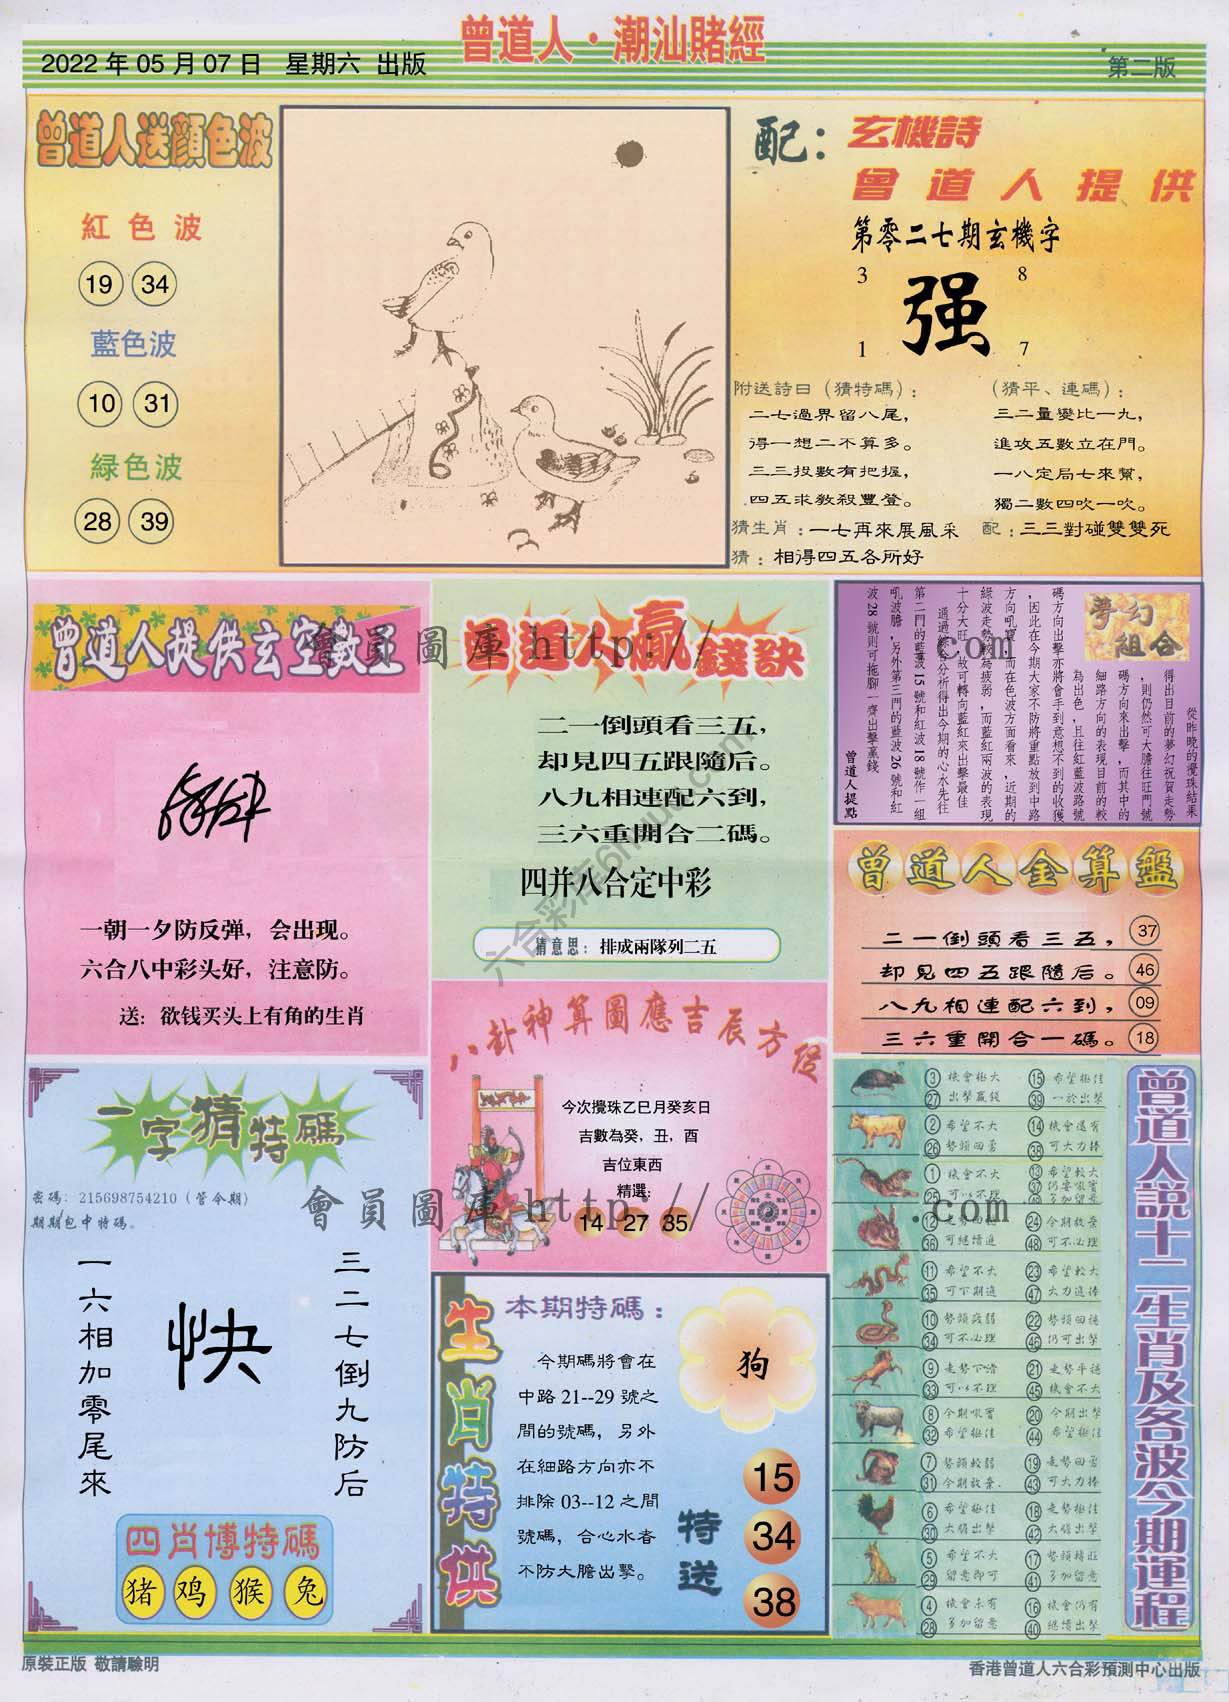 曾道人·潮汕賭經
2022 年 05 月 07 日 星期六 出版
第二版
曾道人送顏色波
紅色波
19 34
藍色波
10 31
緑色波
28 39
配：
玄機詩
曾道人提供
第零二七期玄機字
3 8
强
1 7
附送詩曰（猜特碼）：
二七過界留八尾，
得一想二不算多。
三三投數有把握，
四五求教殺豐登。
（猜平、連碼）：
三二量變比一九，
進攻五數立在門。
一八定局七來幫，
獨二數四吹一吹。
猜生肖：一七再來展風采
配：三三對碰雙雙死
猜：相得四五各所好
曾道人提供玄空數王
一朝一夕防反弹，会出现。
六合八中彩头好，注意防。
送：欲钱买头上有角的生肖
曾道人贏錢訣
二一倒頭看三五，
却見四五跟隨后。
八九相連配六到，
三六重開合二碼。
四并八合定中彩
猜意思：排成兩隊列二五
夢幻組合
從昨晚的攪珠結果
得出目前的夢幻祝賀走勢
，則仍然可大膽往旺門號
碼方向來出擊，而其中的
細路方向的表現目前的較
為出色，且往紅藍波路號
碼方向出擊亦將會手到意想不到的收獲
，因此在今期大家不防將重點放到中路
方向吼寶，而在色波方面看來，近期的
緑波走勢較為疲弱，而藍紅兩波的表現
十分大旺，故可轉向藍紅來出擊最佳
，通過綜合分析得出今期的心水先往
第二門的藍波 15 號和紅波 18 號作一組
吼波膽，另外第三門的藍波 26 號和紅
波 28 號則可拖腳一齊出擊贏錢
曾道人提點
曾道人金算盤
二一倒頭看三五， 37
却見四五跟隨后。 46
八九相連配六到， 09
三六重開合一碼。 18
八卦神算圖應吉辰方位
今次攪珠乙巳月癸亥日
吉數為癸，丑，酉
吉位東西
精選：
14 27 35
一字猜特碼
密碼：215698754210（管令期）
期期包中特碼。
三二七倒九防后
快
一六相加零尾來
四肖博特碼
猪 鸡 猴 兔
生肖特供
本期特碼：
狗
今期碼將會在
中路 21--29 號之
間的號碼，另外
在細路方向亦不
排除 03--12 之間
號碼，合心水春
不防大膽出擊。
特送
15
34
38
曾道人説十二生肖及各波今期運程
3 機會極大 15 希望極佳
27 出擊贏錢 39 一於出擊
2 希望不大 14 機會還有
26 勢頭回勇 38 可大力捧
1 機會不大 13 希望較大
25 可以不理 37
49 多加留意
12 24 今期放棄
36 可繼續進 48 可不必理
11 希望不大 23 希望較大
35 可下期進 47 大力追捧
10 勢頭疲弱 22 勢頭回穩
34 可不必理 46 仍可出擊
9 走勢下滑 21 走勢平穩
33 可以不理 45 機會不大
8 今期吼實 20 今期出擊
32 希望極佳 44 希望極佳
7 勢頭較弱 19 走勢回勇
31 今期放棄 43 可大力捧
6 希望極佳 18 走勢極佳
30 大膽出擊 42 大膽出擊
5 希望不大 17 勢頭精旺
29 留意即可 41 多加留意
4 機會未有 16 機會仍有
28 多加留意 40 繼續出擊
會員圖庫 http:// .com
會員圖庫 http:// .com
原裝正版 敬請驗明
香港曾道人六合彩預測中心出版